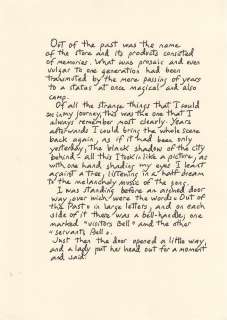 Out of the past was the name
of the store and its products consisted
of memories. What was prosaic and even
vulgar to one generation had been
transmuted by the mere passing of years
to a status at once magical and also
camp.
Of all the strange things that I could
see in my journey, this was the one that I
always remember most clearly. Years
afterwards I could bring the whole scene
back again, as if it had been only
yesterday, the black shadow of the city
behind - all this I took in like a picture, as
with one hand, shading my eyes I leant
against a tree, listening in a half dream
to the melancholy music of the song.
I was standing before an arched door
way, over wich were the words "Out of
the Past" in large letters, and on each
side of it there was a bell-handle; one
marked "visitors Bell" and the other
"servants Bell".
Just then the door opened a little way,
and a lady put her head out for a moment
and said: